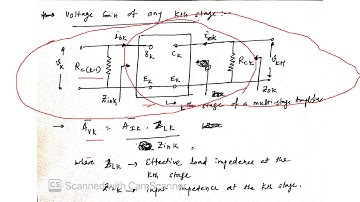 → Voltage Gain of any Kth stage :-
IbK CK IcK
VK RC(K-1) BK CK RCK VK+1
EK EK
ZinK ZoK
→ Kth stage of a multi-stage Amplifier
→ AVK = AIK · ZLK
ZinK,
where ZLK → Effective load impedance at the
Kth stage
ZinK → input impedance at the Kth stage.
CS Scanned with CamScanner